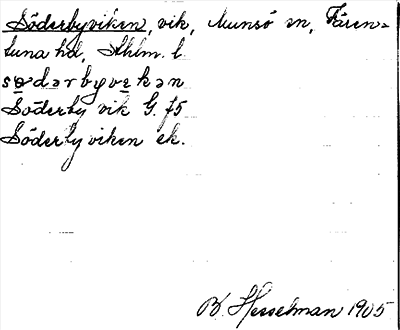 Söderbyviken, vik, Munsö sn, Fären-
tuna hd, Sthlm. l.
sødərbyvekən
Söderby vik G. f5
Söderbyviken ek.
B. Hesselman 1905